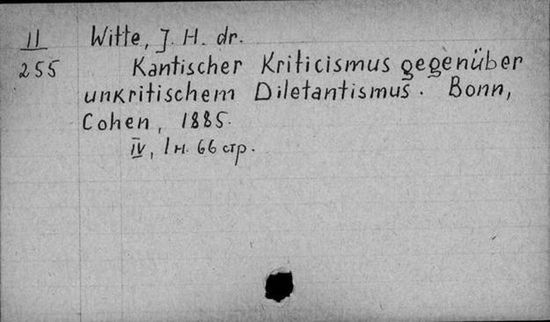 II
255
Witte, J. H. dr.
Kantischer Kriticismus gegenüber
unkritischem Diletantismus. Bonn,
Cohen, 1885.
IV, 1 н. 66 стр.